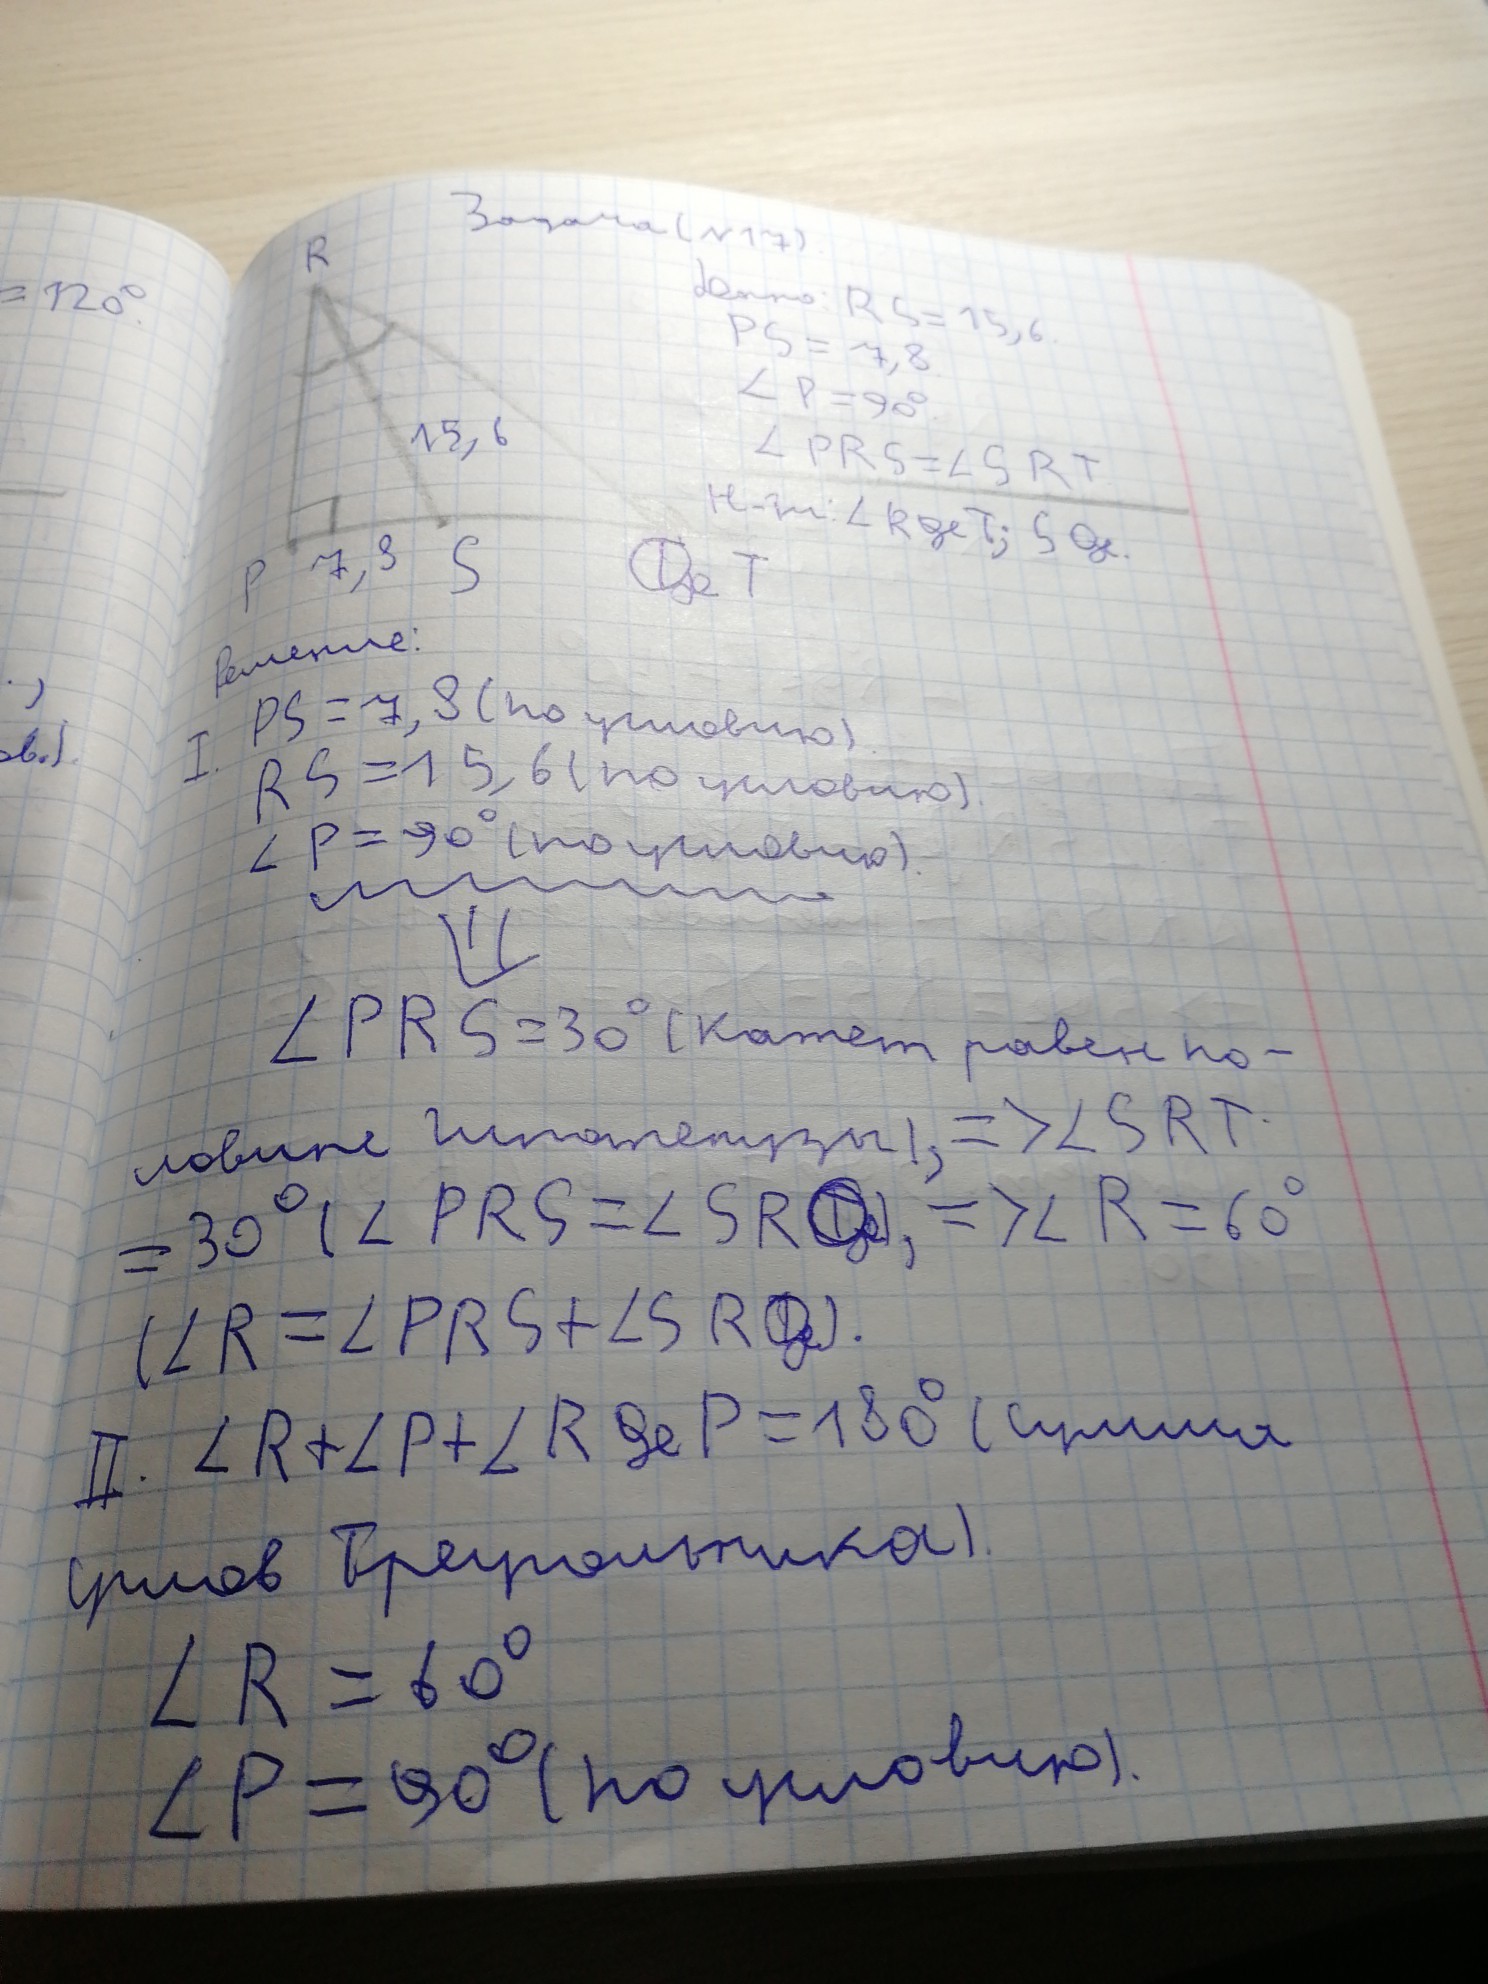 = 120°.
.)
ов.).
Задача (№17).
R
15,6
P 7,8 S T
Дано: RS = 15,6.
PS = 7,8.
∠P = 90°.
∠PRS = ∠SRT
Н-ти: ∠R де T; S де.
Решение:
I. PS = 7,8 (по условию).
RS = 15,6 (по условию).
∠P = 90° (по условию).
∠PRS = 30° (Катет равен по-
ловине Гипотенузы), => ∠SRT
= 30° (∠PRS = ∠SR), => ∠R = 60°
(∠R = ∠PRS + ∠SR).
II. ∠R + ∠P + ∠R де P = 180° (сумма
углов Треугольника).
∠R = 60°
∠P = 90° (по условию).